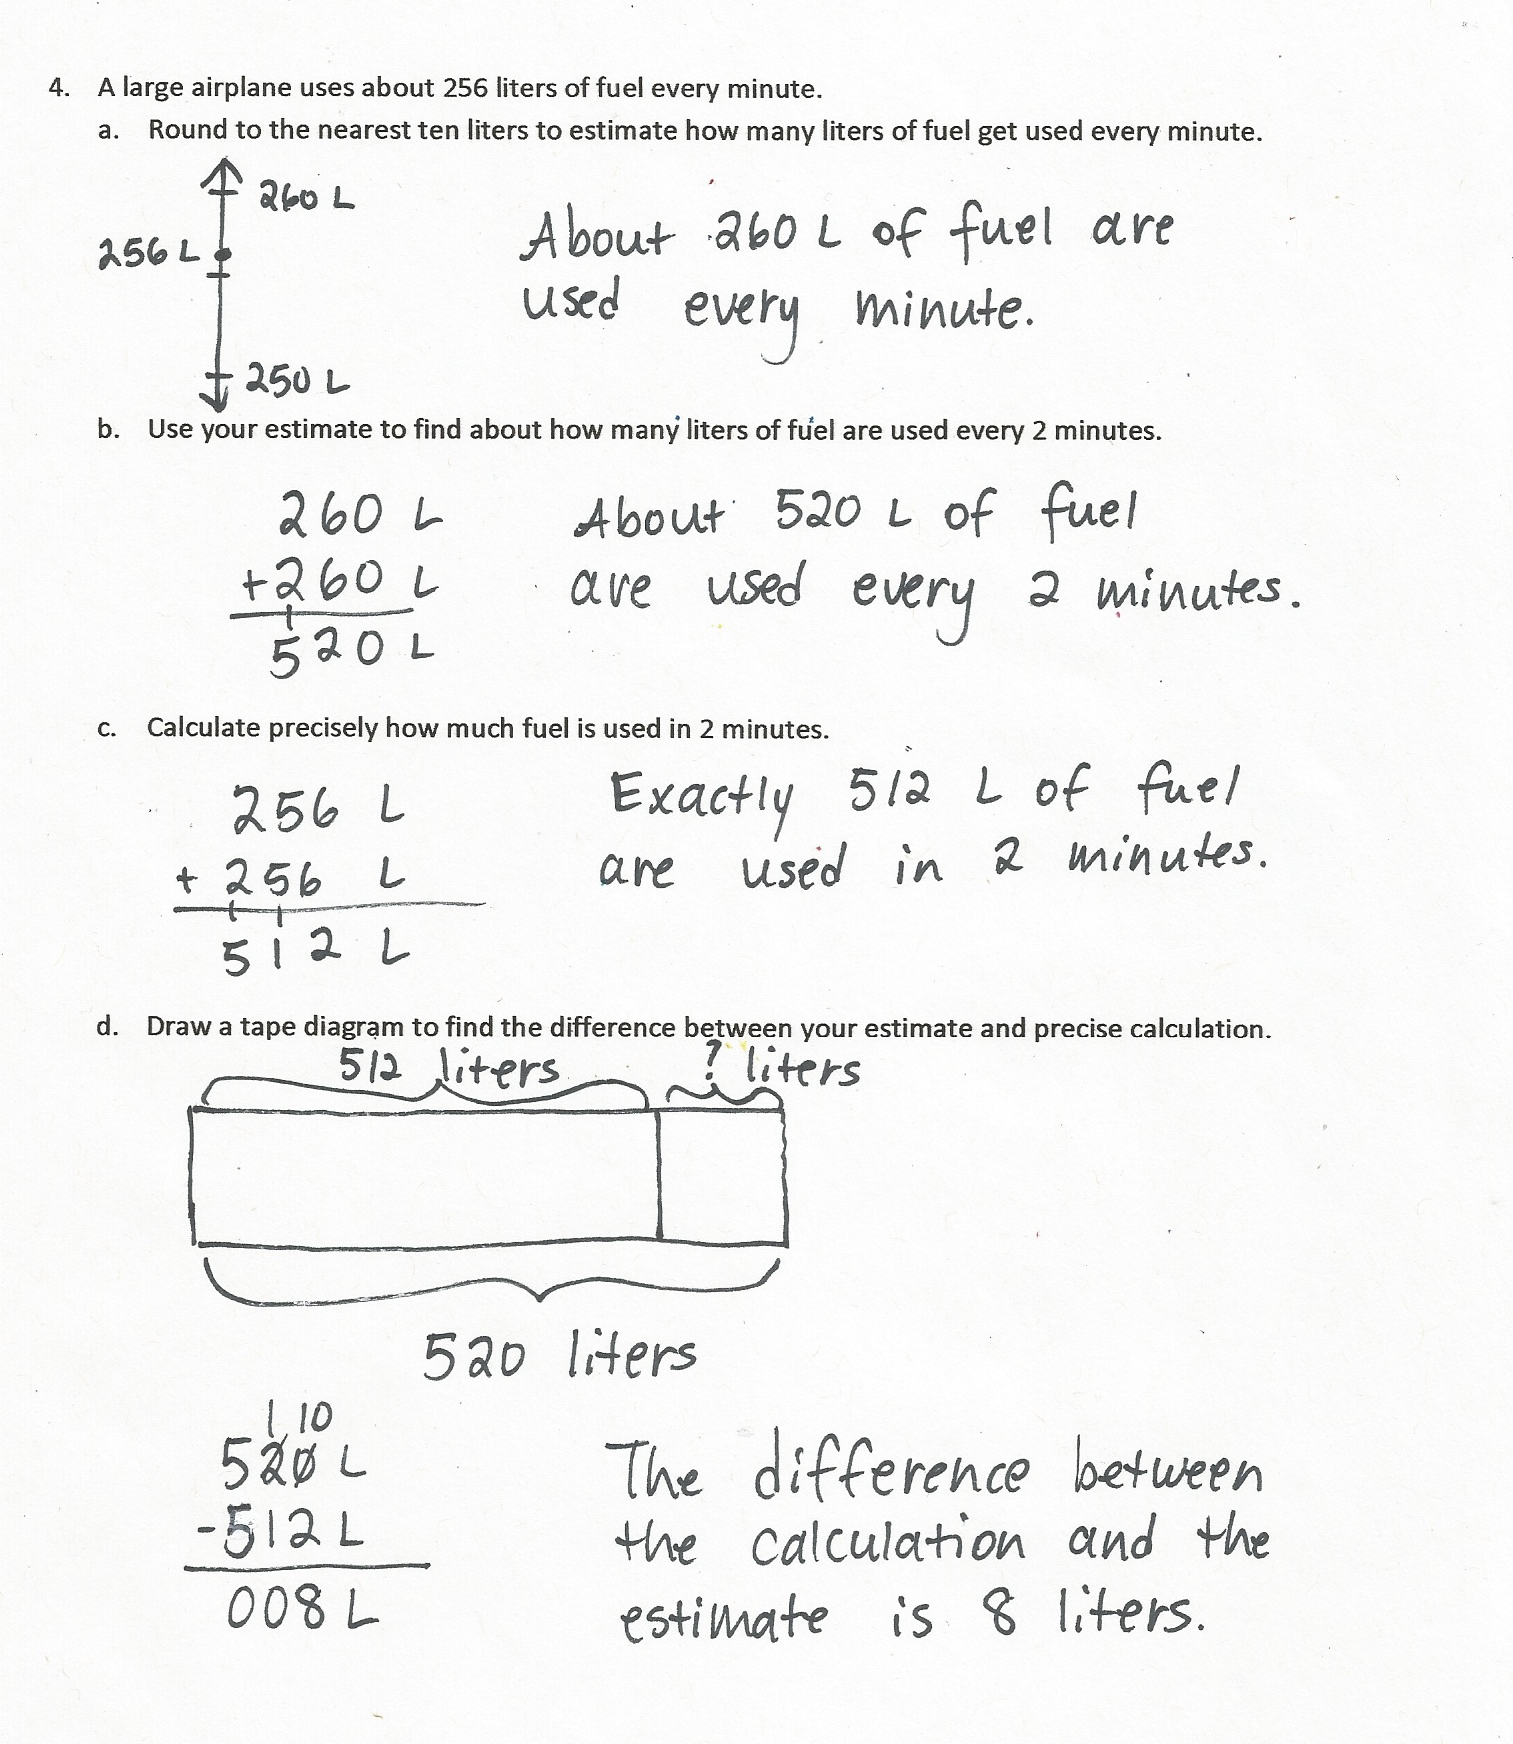 4. A large airplane uses about 256 liters of fuel every minute.
a. Round to the nearest ten liters to estimate how many liters of fuel get used every minute.
260 L
256 L
250 L
About 260 L of fuel are
used every minute.
b. Use your estimate to find about how many liters of fuel are used every 2 minutes.
260 L
+260 L
1
520 L
About 520 L of fuel
are used every 2 minutes.
c. Calculate precisely how much fuel is used in 2 minutes.
256 L
+ 256 L
1 1
512 L
Exactly 512 L of fuel
are used in 2 minutes.
d. Draw a tape diagram to find the difference between your estimate and precise calculation.
512 liters ? liters
520 liters
1 10
520 L
-512 L
008 L
The difference between
the calculation and the
estimate is 8 liters.